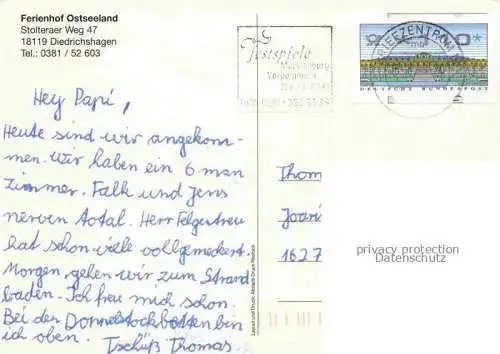 Ferienhof Ostseeland
Stolteraer Weg 47
18119 Diedrichshagen
Tel.: 0381 / 52 603
festspiele
Mecklenburg
Vorpommern
BRIEFZENTRUM
DEUTSCHE BUNDESPOST
Hey Papi,
Heute sind wir angekom-
men. Wir haben ein 6 man
Zimmer. Falk und Jens
nerven total. Herr Felgertreu
hat schon viele vollgemeckert.
Morgen gehen wir zum Strand
baden. Ich freu mich schon.
Bei den Donnelstockbetten bin
ich oben. Tschüß Thomas
Thom
Joari
1627
privacy protection
Datenschutz